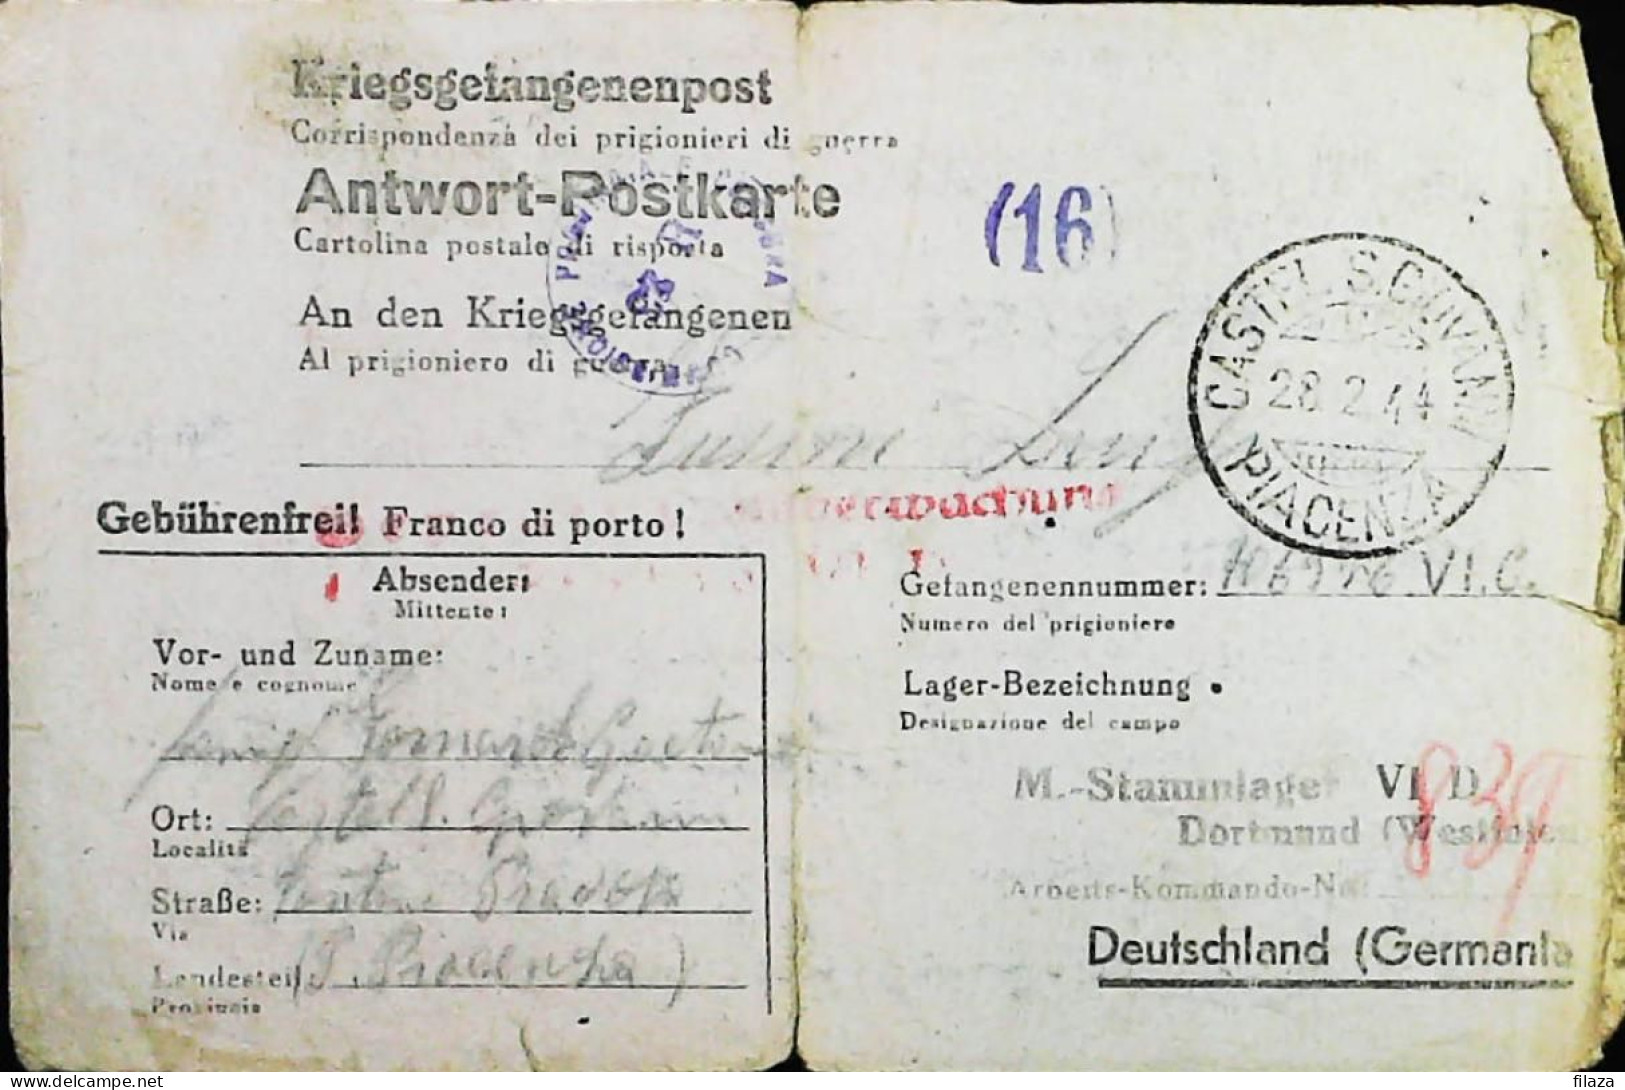 Kriegsgefangenenpost
Corrispondenza dei prigionieri di guerra
Antwort-Postkarte
Cartolina postale di risposta
(16)
An den Kriegsgefangenen
Al prigioniero di guerra
CASTEL S. GIOVANNI
28.2.44
PIACENZA
Gebührenfrei! Franco di porto!
Absender:
Mittente:
Vor- und Zuname:
Nome e cognome
Ort: Castell.
Località
Straße: Pradosa
Via
Landesteil: (P. Piacenza)
Provincia
Gefangenennummer: VI.C.
Numero del prigioniero
Lager-Bezeichnung
Designazione del campo
M.-Stammlager VI D
Dortmund (Westfalen
839
Arbeits-Kommando-Nr.
Deutschland (Germania
delcampe.net
filaza